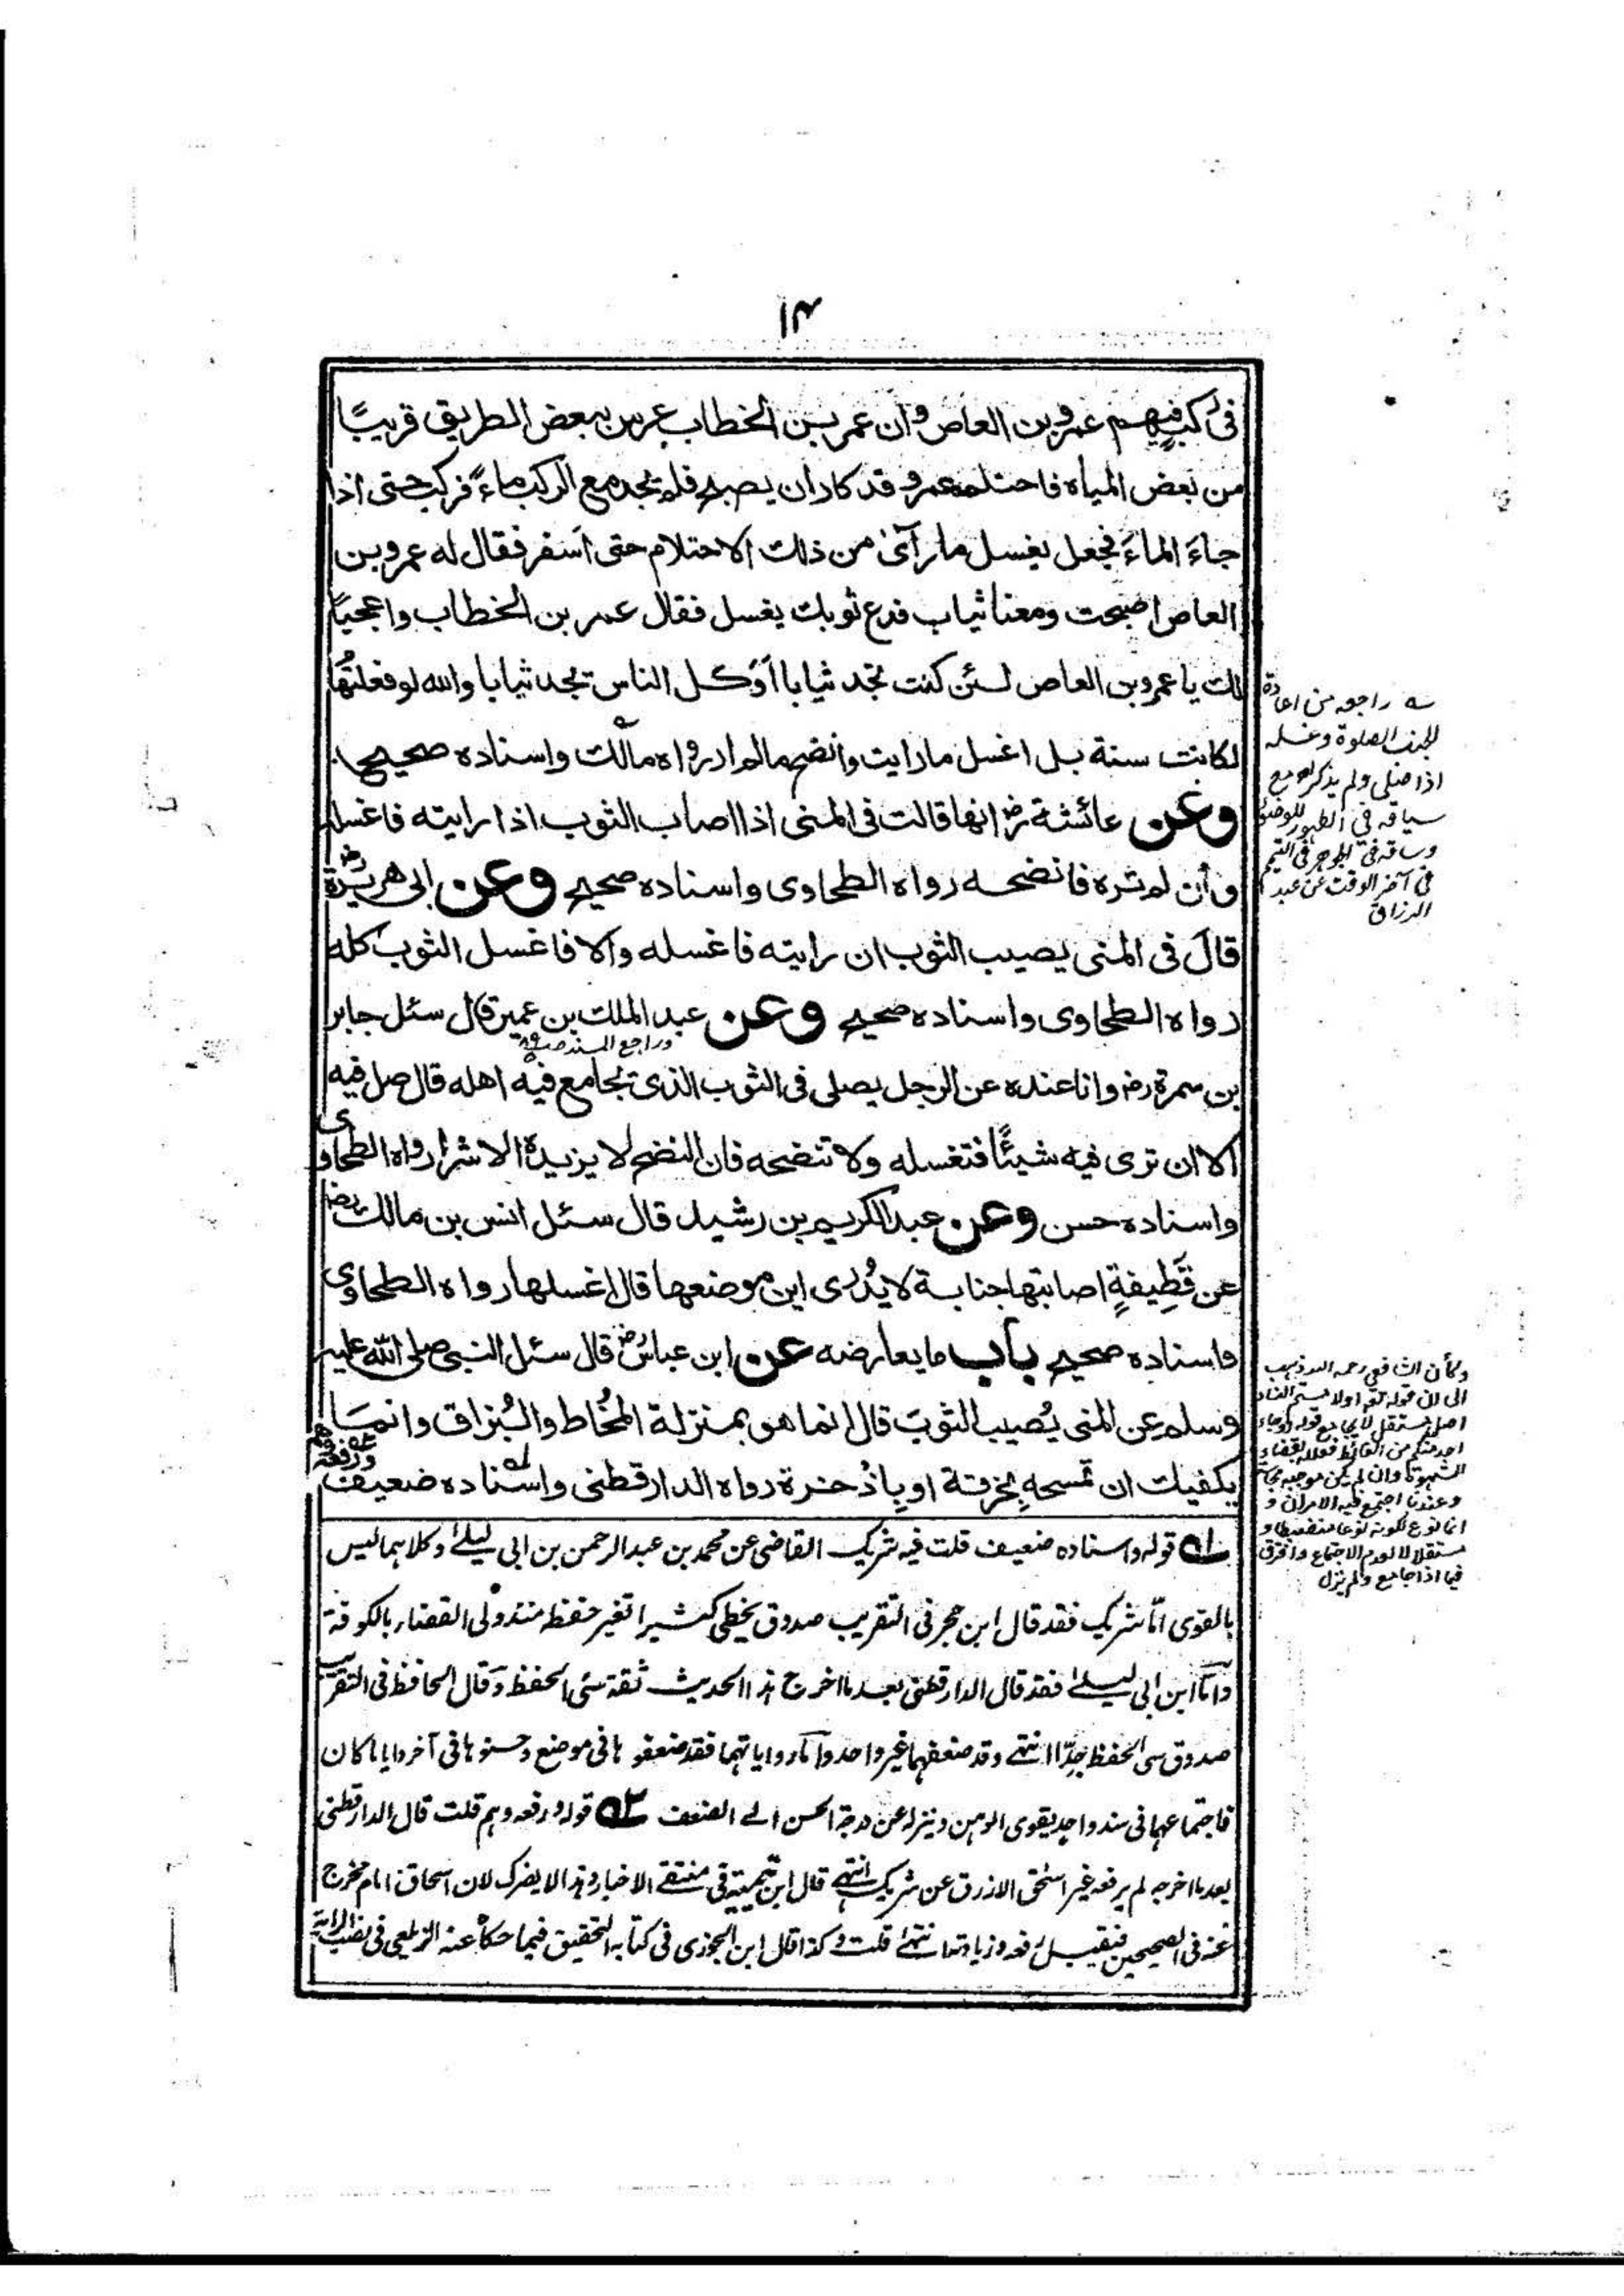 ١٣
فى ركب فيهم عمرو بن العاص وان عمر بن الخطاب عرس ببعض الطريق قريبًا
من بعض المياه فاحتلم عمر وقد كاد ان يصبح فلم يجد مع الركب ماءً فركب حتى اذا
جاءَ الماءَ فجعل يغسل ما رآى من ذلك الاحتلام حتى اَسفر فقال له عمرو بن
العاص اصبحت ومعنا ثياب فدع ثوبك يغسل فقال عمر بن الخطاب واعجبًا
لك يا عمرو بن العاص لئن كنت تجد ثيابا اَوَكل الناس تجد ثيابا والله لو فعلتُها
لكانت سنة بل اغسل ما رايت وانضح ما لم ار رواه مالك واسناده صحيح
وعن عائشة رض انها قالت فى المنى اذا اصاب الثوب اذا رايته فاغسله
وأن لم تره فانضحه رواه الطحاوى واسناده صحيح وعن ابى هريرة رض
قالَ فى المنى يصيب الثوب ان رايته فاغسله والا فاغسل الثوب كله
رواه الطحاوى واسناده صحيح وعن عبد الملك بن عمير قال سئل جابر
وراجع المسند
بن سمرة رض وانا عنده عن الرجل يصلى فى الثوب الذى يجامع فيه اهله قال صل فيه
الا ان ترى فيه شيئًا فتغسله ولا تنضحه فان النضح لا يزيده الا شرا رواه الطحاوى
واسناده حسن وعن عبد الكريم بن رشيد قال سئل انس بن مالك رض
عن قَطِيفةٍ اصابتها جنابة لا يُدرى اين موضعها قال اغسلها رواه الطحاوى
واسناده صحيح باب ما يعارضه عن ابن عباس رض قال سئل النبى صلى الله عليه
وسلم عن المنى يُصيب الثوبَ قال انما هو بمنزلة المخُاط والبُزاق وانمَا
يكفيك ان تمسحه بِخرقة او بِاذْخرة رواه الدارقطنى واسناده ضعيف ورفعه وهم
٥١ قوله واسناده ضعيف قلت فيه شريك القاضى عن محمد بن عبد الرحمن بن ابى ليلىٰ وكلاهما ليس
بالقوى امّا شريك فقد قال ابن حجر فى التقريب صدوق يخطى كثيرا تغير حفظه منذ ولى القضاء بالكوفة
وامّا ابن ابى ليلىٰ فقد قال الدارقطنى بعد ما اخرج هذا الحديث ثقة سئى الحفظ وقال الحافظ فى التقريب
صدوق سى الحفظ جدًا انتهى وقد ضعفهما غير واحد واما رواياتهما فقد ضعفوها فى موضع وحسنوها فى آخر وايا ما كان
فاجتماعهما فى سند واحد يقوى الوهن وينزله عن درجة الحسن الى الضعف ٥٢ قوله ورفعه وهم قلت قال الدارقطنى
بعد ما اخرجه لم يرفعه غير اسحٰق الازرق عن شريك انتهى قال ابن تيمية فى منتقى الاخبار وهذا لا يضرك لان اسحاق امام مخرج
عنه فى الصحيحين فيقبل رفعه وزيادته انتهى قلت وكذا قال ابن الجوزى فى كتابه التحقيق فيما حكاه عنه الزيلعى فى نصب الراية
راجعه من اعادة
الجنب الصلوة وغسله
اذا صلى ولم يذكر مع
سياقه فى الطهور للوضوء
وساقه فى الجوهر فى التيمم
فى آخر الوقت عن عبد
الرزاق
وكأن الشافعى رحمه الله ذهب
الى ان قوله تعالى اولامستم النساء
اصل مستقل
احد منكم من الغائط
وعندنا اجتمع فيه الامران و
مستقلا لا لعدم الاجتماع وافترق
فيما اذا جامع ولم ينزل